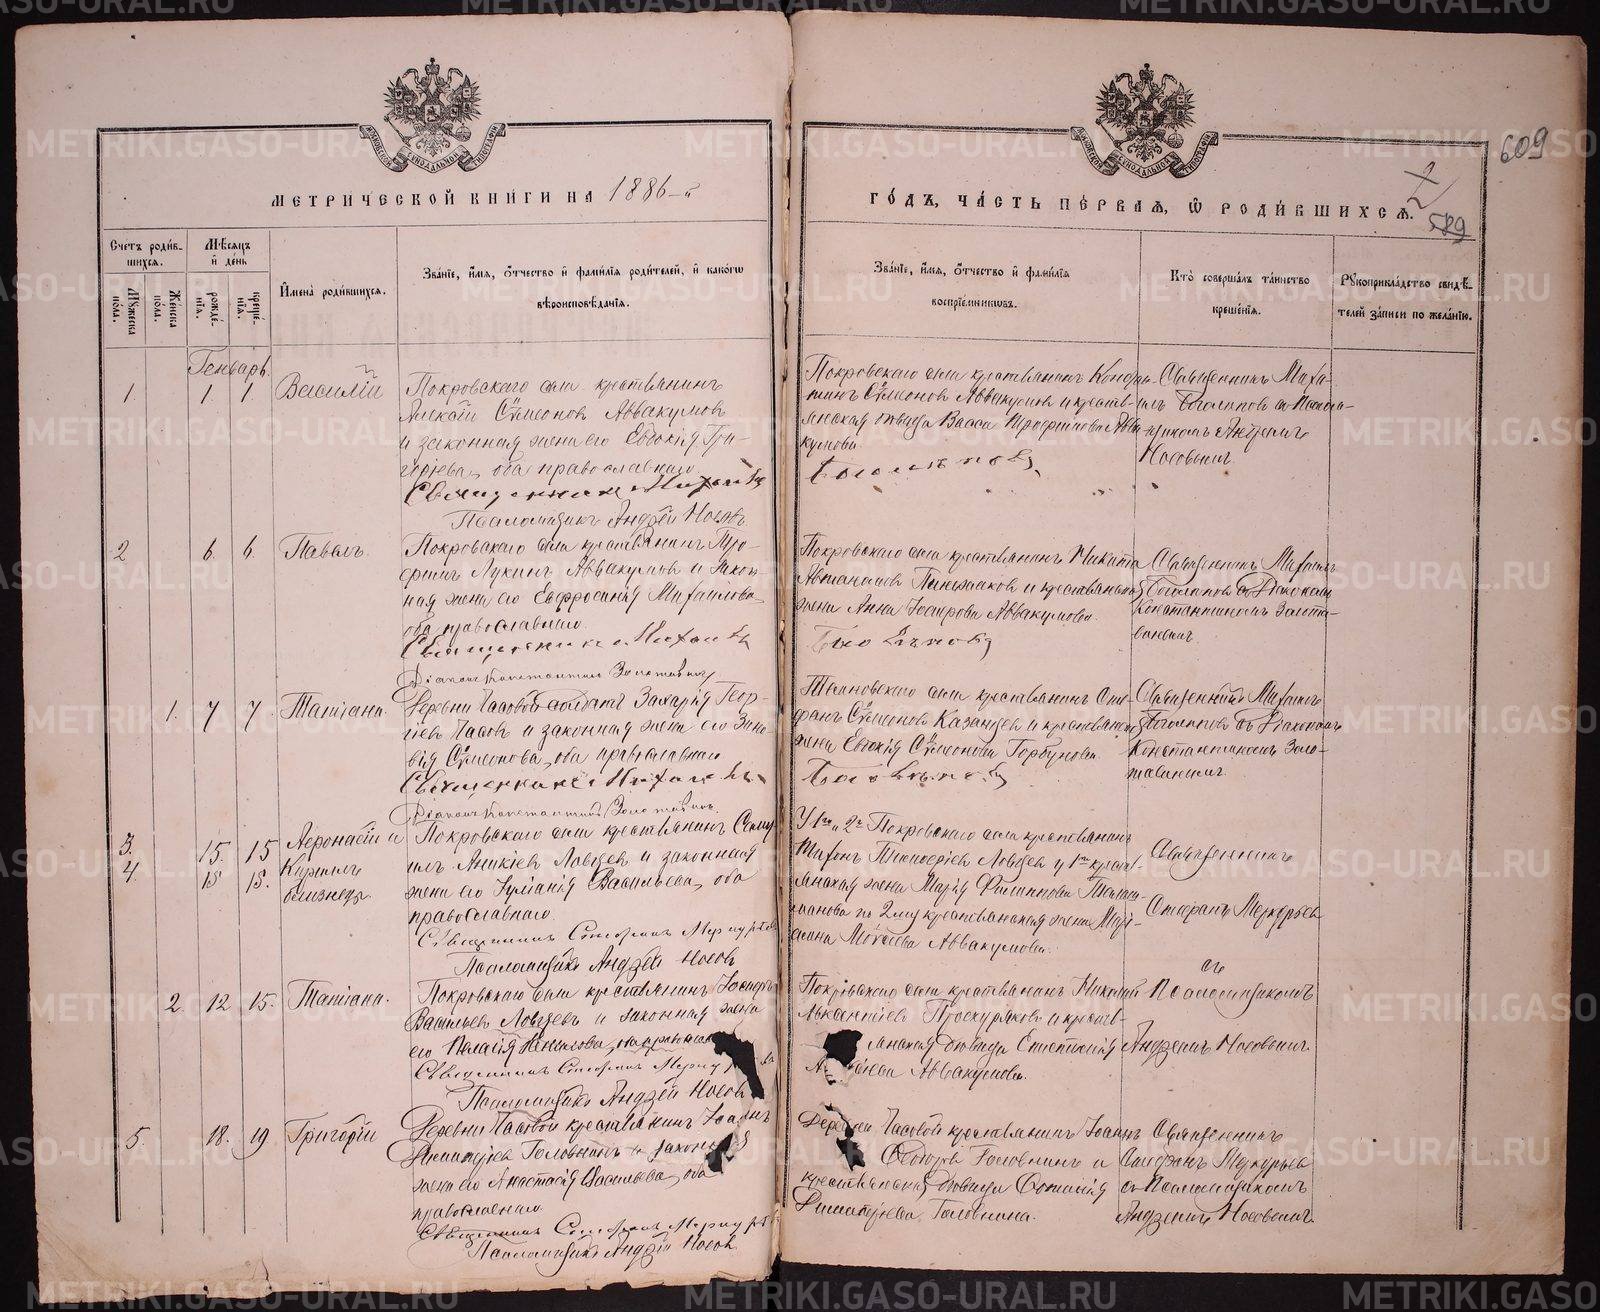 МЕТРИЧЕСКОЙ КНИГИ НА 1886-й
ГОДЪ, ЧАСТЬ ПЕРВАЯ, Ѡ РОДИВШИХСЯ.
609
589
Счетъ родив-
шихся.
Мѣсяцъ
и день
Мужеска
пола.
Женска
пола.
рожде-
нія.
креще-
нія.
Имена родившихся.
Званіе, имя, отчество и фамилія родителей, и какогѡ
вѣроисповѣданія.
Званіе, имя, отчество и фамилія
воспріемниковъ.
Кто совершалъ таинство
крещенія.
Рукоприкладство свидѣ-
телей записи по желанію.
Генварь
1. 1. 1. Василій
Покровскаго села крестьянинъ
Алексій Сѵмеонов Аввакумов
и законная жена его Евдокія Гри-
горіева, оба православнаго
Священникъ Михаилъ
Псаломщикъ Андрей Носовъ
Покровскаго села крестьянинъ Кондра-
тій Сѵмеонов Аввакумов и крестья-
янская дѣвица Васса Трофимова Авва-
кумова
Боголѣповъ
Священникъ Миха-
илъ Боголѣповъ съ Псалом-
щикомъ Андреемъ
Носовымъ
2 6. 6. Павелъ.
Покровскаго села крестьянинъ Тро-
фимъ Лукинъ Аввакумов и закон-
ная жена его Евфросинія Михаилова
оба православнаго
Священникъ Михаилъ
Діаконъ Константинъ Золотавинъ
Покровскаго села крестьянинъ Никита
Авванасьев и крестьянская
жена Анна Іосифова Аввакумова.
Боголѣповъ
Священникъ Михаилъ
Боголѣповъ съ Діакономъ
Константиномъ Золота-
винымъ
1. 7 7. Татіана.
Деревни Часовой солдатъ Захарія Геор-
гіев Часов и законная жена его Зино-
вія Сѵмеонова, оба православнаго
Священникъ Михаилъ
Діаконъ Константинъ Золотавинъ
села крестьянинъ Сте-
фанъ Сѵмеонов Казанцев и крестьянская
жена Евдокія Сѵмеонова Горбунова
Боголѣповъ
Священникъ Михаилъ
Боголѣповъ съ Діакономъ
Константиномъ Золо-
тавинымъ.
3. 15. 15 Аѳонасій и
4. 15 15. Кириллъ
близнецы.
Покровскаго села крестьянинъ Саму-
илъ Аникіев Ловцев и законная
жена его Іуліанія Васильева, оба
православнаго.
Священникъ Стефанъ Меркурьевъ
Псаломщикъ Андрей Носовъ
У 1го и 2го Покровскаго села крестьянинъ
Тихонъ Ловцев у 1го крестья-
янская жена Марія Филиппова
по 2му крестьянская жена Мари-
амна Моѵсеева Аввакумова.
Священникъ
Стефанъ Меркурьев
съ
2. 12 15. Татіана.
Покровскаго села крестьянинъ Іосифъ
Васильев Ловцев и законная жена
его Пелагія оба православнаго
Священникъ Стефанъ Меркурьевъ
Псаломщикъ Андрей Носовъ
Покровскаго села крестьянинъ Николай
Авксентіев Проскуряков и крестья-
янская дѣвица
Аввакумова.
Псаломщикомъ
Андреемъ Носовымъ.
5. 18. 19 Григорій
Деревни Часовой крестьянинъ Іоаннъ
Димитріев Головнинъ и законная
жена его Анастасія Васильева, оба
православнаго
Священникъ Стефанъ Меркурьевъ
Псаломщикъ Андрей Носовъ.
Деревни Часовой крестьянинъ Іоаннъ
Ѳеодоров Головнинъ и
крестьянская дѣвица
Димитріева Головнина.
Священникъ
Стефанъ Меркурьев
съ Псаломщикомъ
Андреемъ Носовымъ.